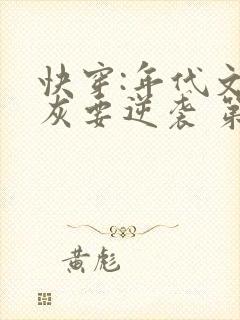 快穿:年代文
灰要逆袭 第
黄彪